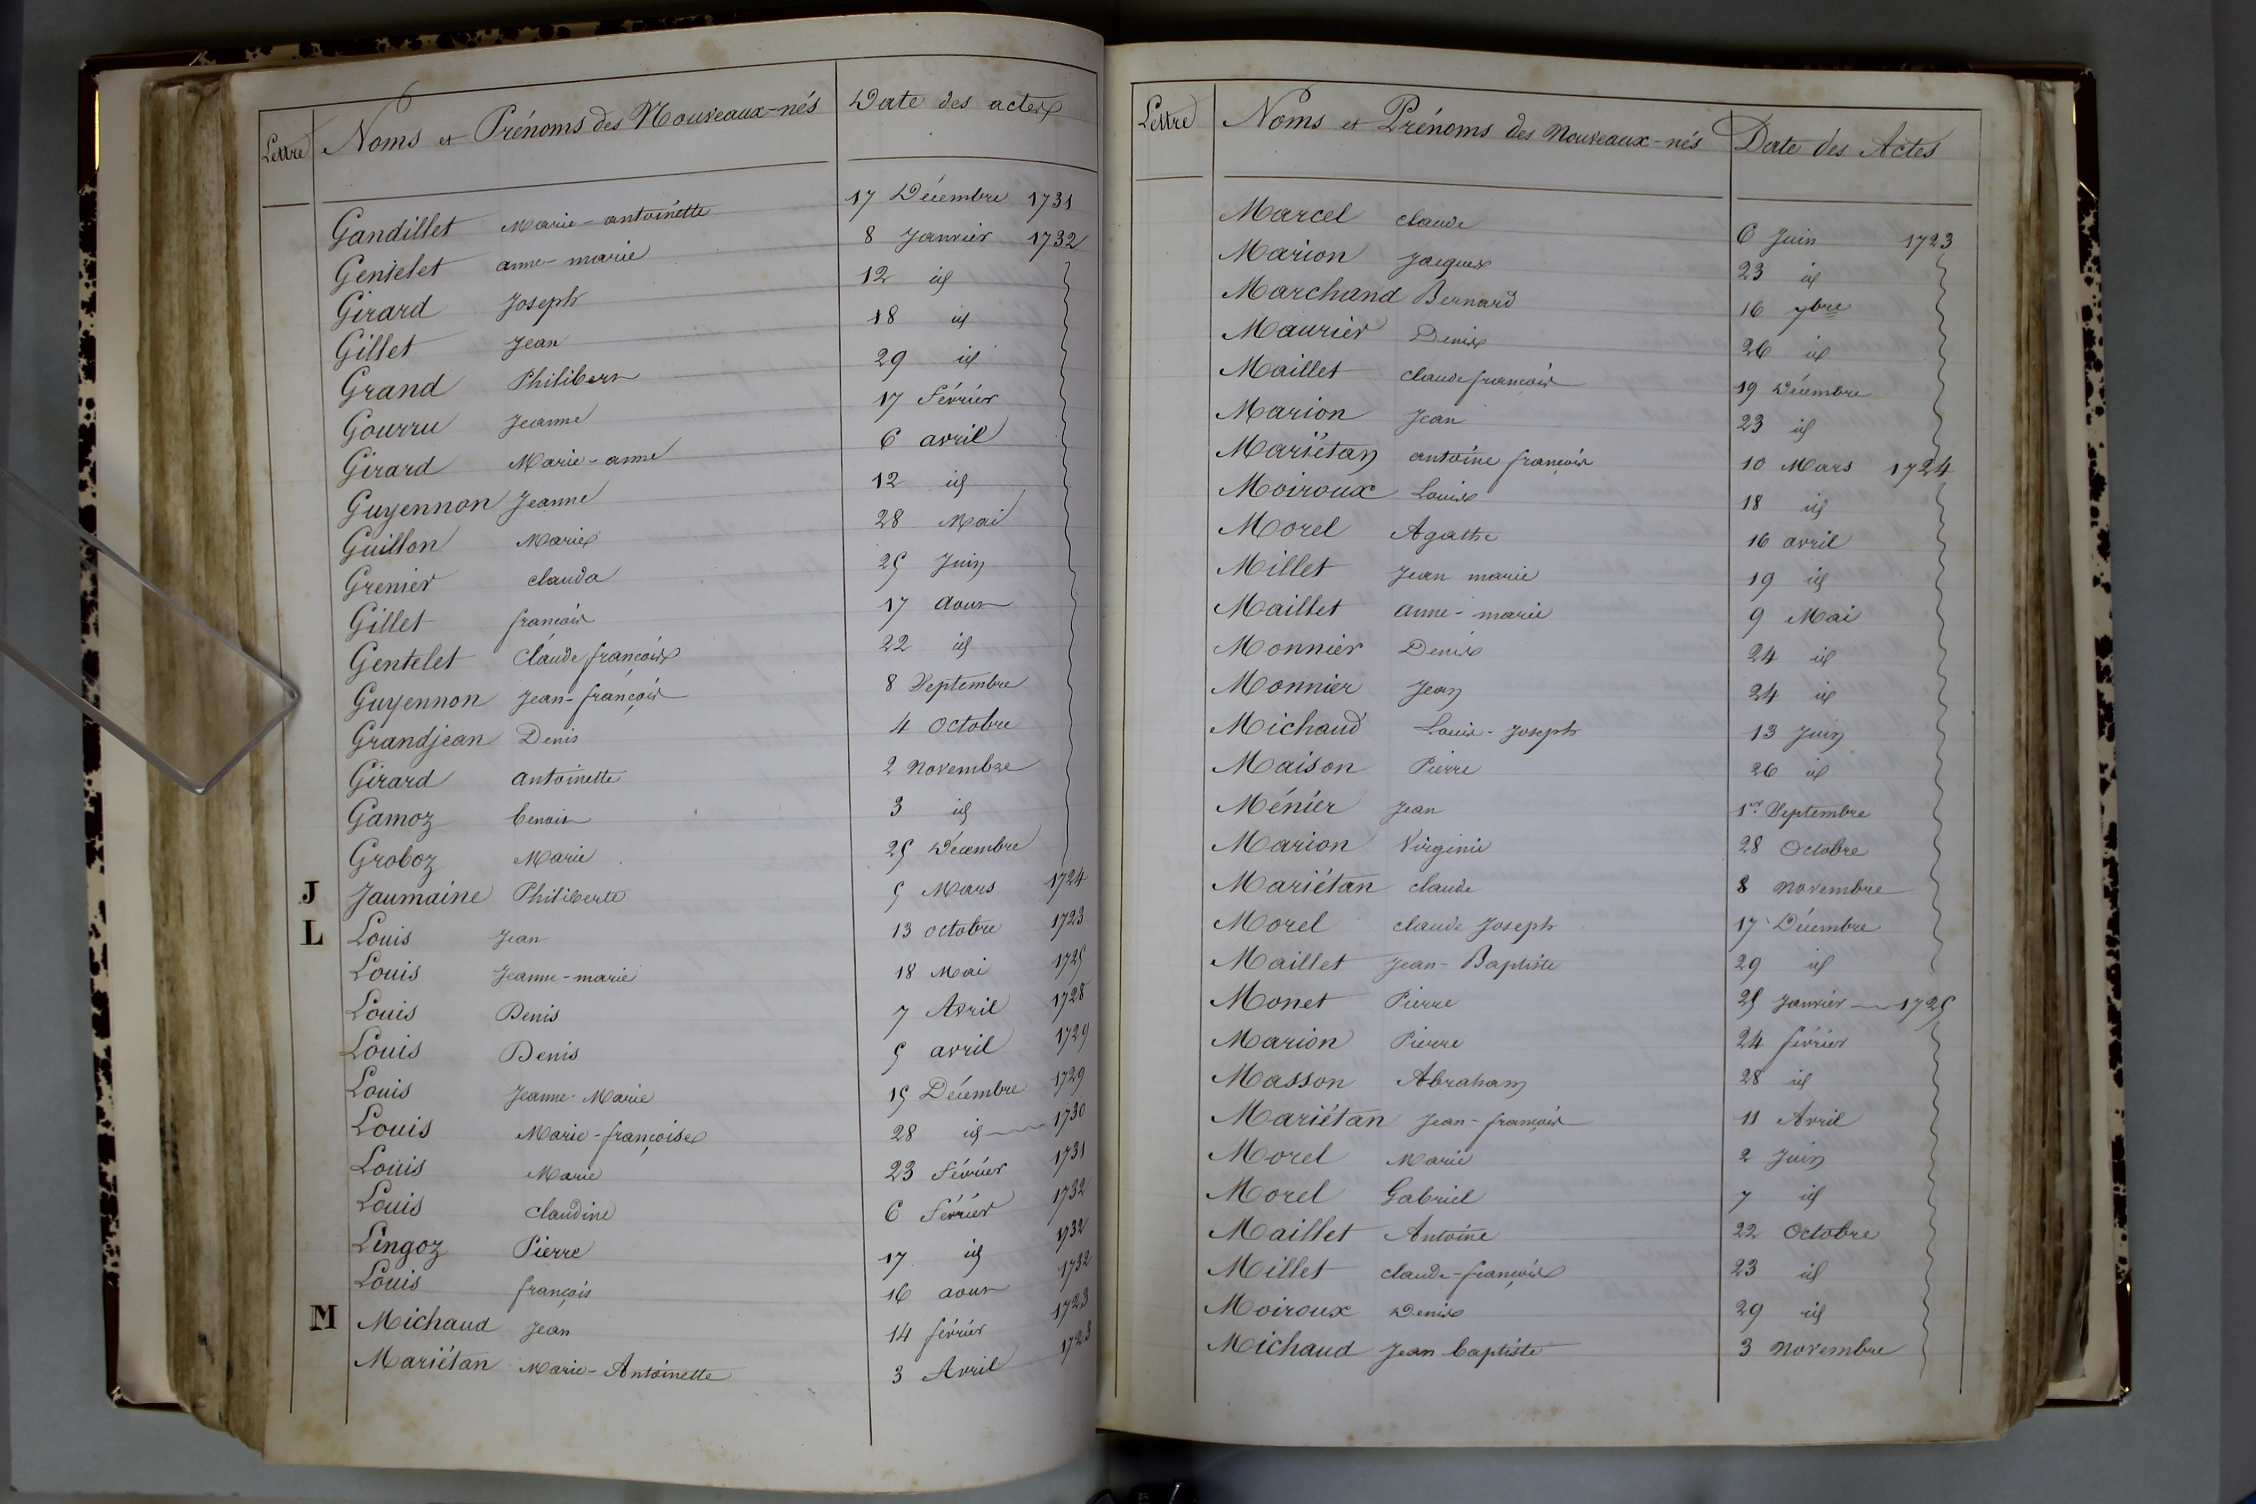 Lettre Noms et Prénoms des Nouveaux-nés Date des actes
Gandillet Marie-antoinette 17 Décembre 1731
Gentelet anne-marie 8 Janvier 1732
Girard Joseph 12 id
Gillet Jean 18 id
Grand Philibert 29 id
Gourru Jeanne 17 Février
Girard Marie-anne 6 avril
Guyennon Jeanne 12 id
Guillon Marie 28 Mai
Grenier clauda 25 Juin
Gillet françois 17 Aout
Gentelet Claude françois 22 id
Guyennon Jean-françois 8 Septembre
Grandjean Denis 4 Octobre
Girard antoinette 2 Novembre
Gamoz benoit 3 id
Groboz Marie 25 Décembre
J Jaumaine Philiberte 5 Mars 1724
L Louis Jean 13 octobre 1723
Louis Jeanne-marie 18 Mai 1725
Louis Denis 7 Avril 1728
Louis Denis 5 avril 1729
Louis Jeanne-Marie 15 Décembre 1729
Louis Marie-françoise 28 id 1730
Louis Marie 23 Février 1731
Louis Claudine 6 Février 1732
Lingoz Pierre 17 id 1732
Louis françois 16 aout 1732
M Michaud Jean 14 février 1723
Mariétan Marie-Antoinette 3 Avril 1723
Lettre Noms et Prénoms des Nouveaux-nés Date des Actes
Marcel claude 6 Juin 1723
Marion Jacques 23 id
Marchand Bernard 16 7bre
Maurier Denis 26 id
Maillet claude françois 19 Décembre
Marion Jean 23 id
Mariétan antoine françois 10 Mars 1724
Moiroux Louis 18 id
Morel Agathe 16 avril
Millet Jean marie 19 id
Maillet anne-marie 9 Mai
Monnier Denis 24 id
Monnier Jean 24 id
Michaud Louis-Joseph 13 Juin
Maison Pierre 26 id
Ménier Jean 1er Septembre
Marion Virginie 28 Octobre
Mariétan claude 8 Novembre
Morel claude Joseph 17 Décembre
Maillet Jean-Baptiste 29 id
Monet Pierre 25 Janvier 1725
Marion Pierre 24 février
Masson Abraham 28 id
Mariétan Jean-françois 11 Avril
Morel Marie 2 Juin
Morel Gabriel 7 id
Maillet Antoine 22 Octobre
Millet claude-françois 23 id
Moiroux Denis 29 id
Michaud Jean baptiste 3 Novembre